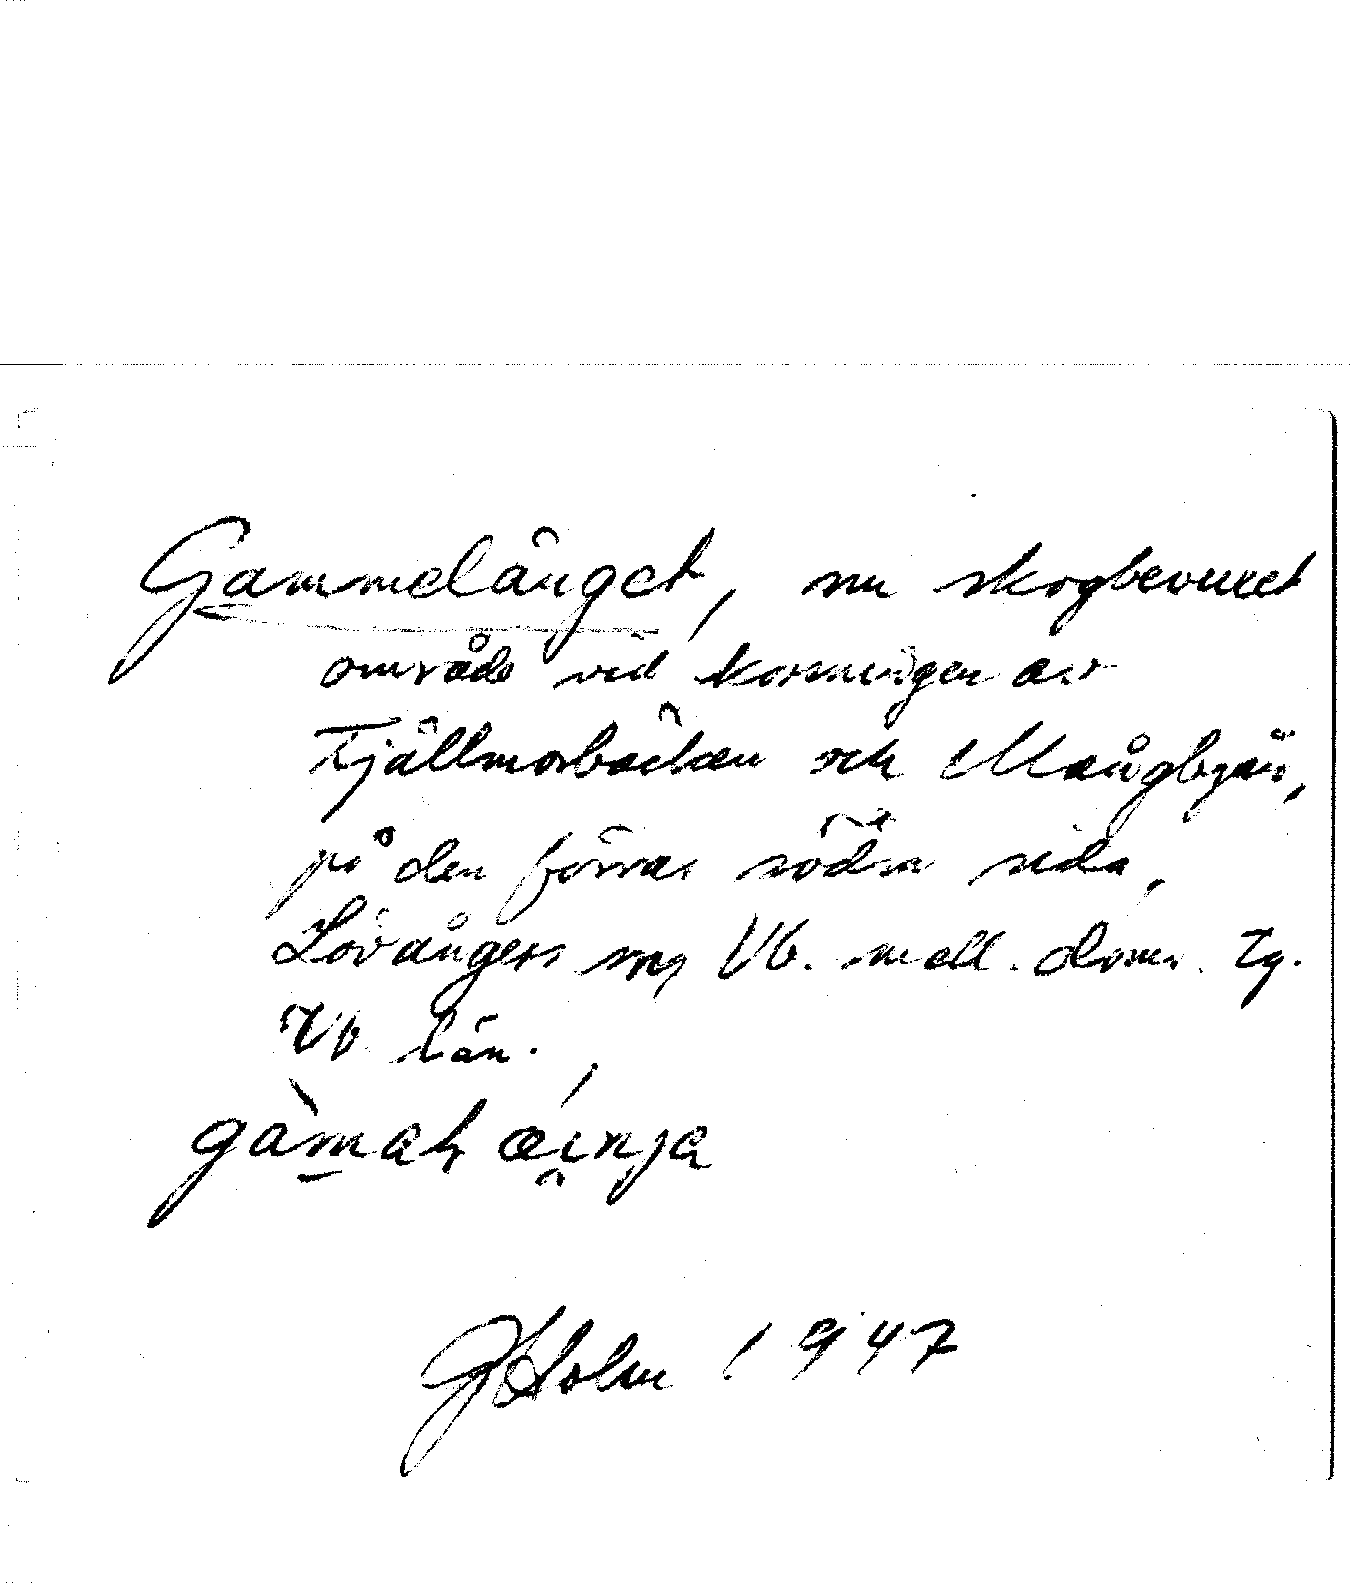 Gammelänget, nu skogbevuxet
område vid korsningen av
Fjällmorbäcken och Mångbyån,
på den förras södra sida,
Lövångers sn, Vb. mell. doms. tg.
Vb län.
gàmaḷ æi̯nja
GHolm 1947